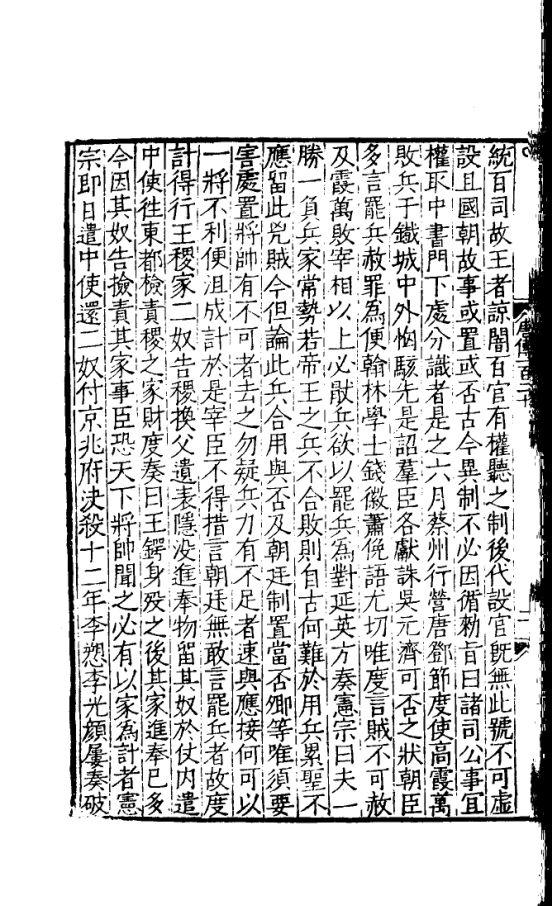 統百司故王者諒闇百官有權聽之制後代設官旣無此號不可虛
設且國朝故事或置或否古今異制不必因循勑旨曰諸司公事宜
權取中書門下處分識者是之六月蔡州行營唐鄧節度使高霞萬
敗兵于鐵城中外恟駭先是詔羣臣各獻誅吳元濟可否之狀朝臣
多言罷兵赦罪為便翰林學士錢徽蕭俛語尤切唯度言賊不可赦
及霞萬敗宰相以上必猒兵欲以罷兵為對延英方奏憲宗曰夫一
勝一負兵家常勢若帝王之兵不合敗則自古何難於用兵累聖不
應留此兇賊今但論此兵合用與否及朝廷制置當否卿等唯須要
害處置將帥有不可者去之勿疑兵力有不足者速與應接何可以
一將不利便沮成計於是宰臣不得措言朝廷無敢言罷兵者故度
計得行王稷家二奴告稷換父遺表隱没進奉物留其奴於仗内遣
中使往東都檢責稷之家財度奏曰王鍔身殁之後其家進奉已多
今因其奴告撿責其家事臣恐天下將帥聞之必有以家為計者憲
宗即日遣中使還二奴付京兆府决殺十二年李愬李光顔屢奏破